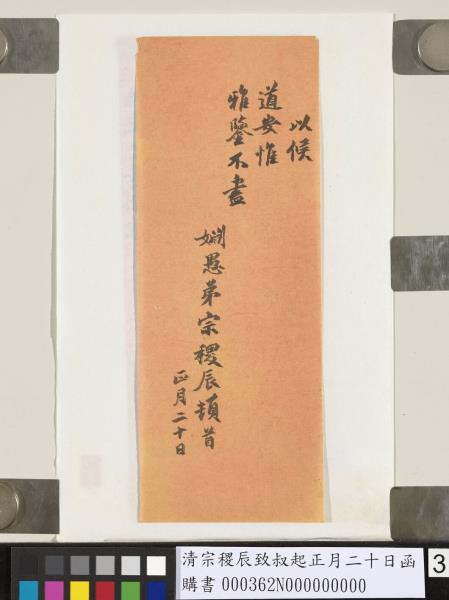 以候
道安惟
雅鑒不盡
姻愚弟宗稷辰頓首
正月二十日
清宗稷辰致叔起正月二十日函
購書 000362N000000000
3